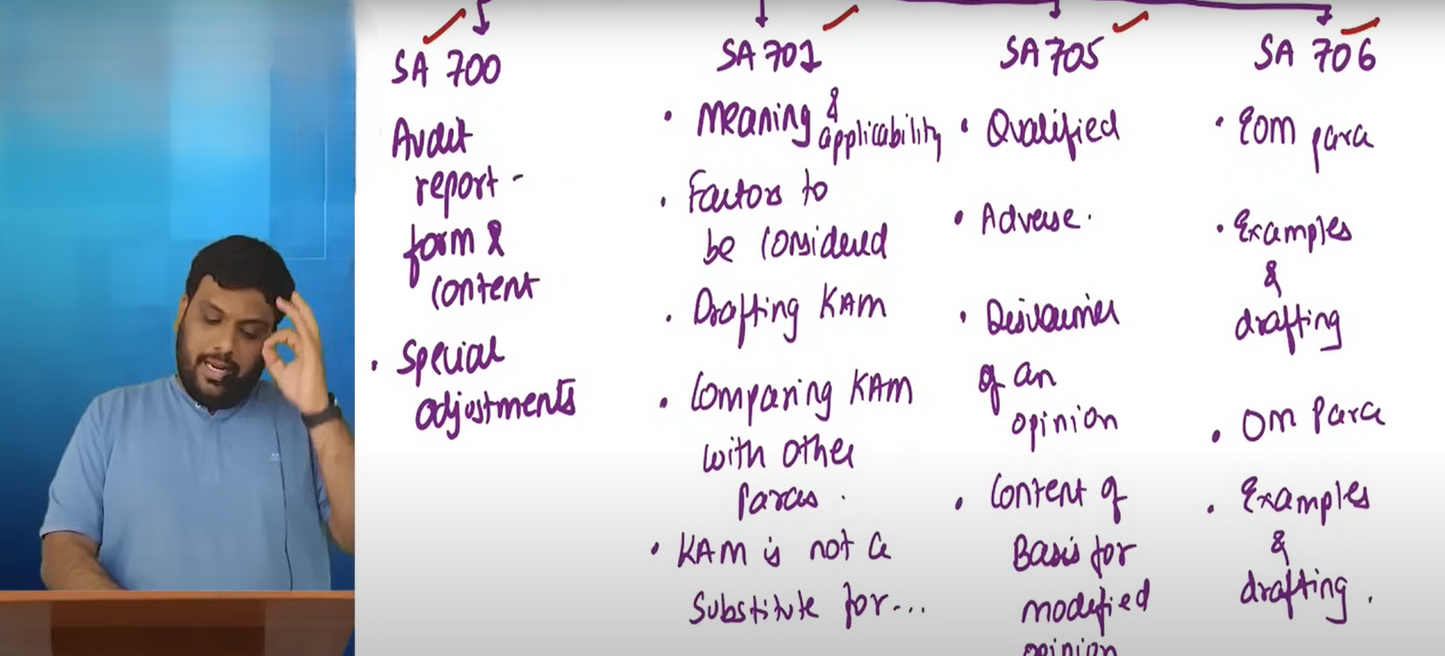 SA 700
Audit
report -
form &
content
• Special
adjustments
SA 701
• Meaning &
applicability
• Factors to
be considered
• Drafting KAM
• Comparing KAM
with other
Paras.
• KAM is not a
Substitute for...
SA 705
• Qualified
• Adverse.
• Disclaimer
of an
opinion
• Content of
Basis for
modified
opinion
SA 706
• EOM para
• Examples
&
drafting
• OM Para
• Examples
&
drafting.